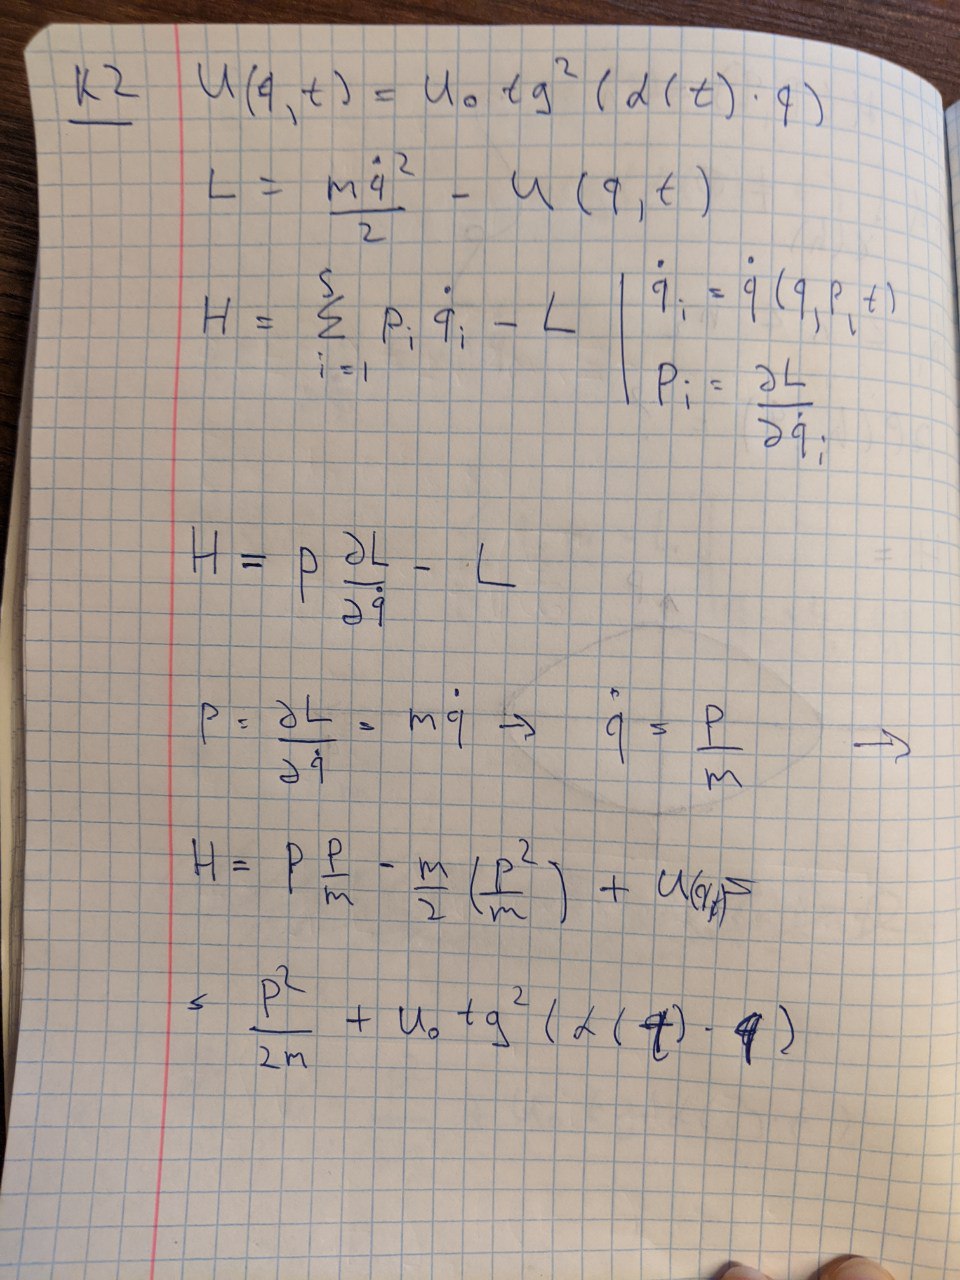 К2 U(q,t) = U₀ tg²(α(t)·q)
L = mq̇²/2 - U(q,t)
H = Σ_{i=1}^{S} pᵢ q̇ᵢ - L | q̇ᵢ = q̇(q,p,t)
pᵢ = ∂L/∂q̇ᵢ
H = p ∂L/∂q̇ - L
p = ∂L/∂q̇ = mq̇ → q̇ = p/m →
H = p p/m - m/2 (p²/m) + U(q,t) =
= p²/2m + U₀ tg²(α(t)·q)